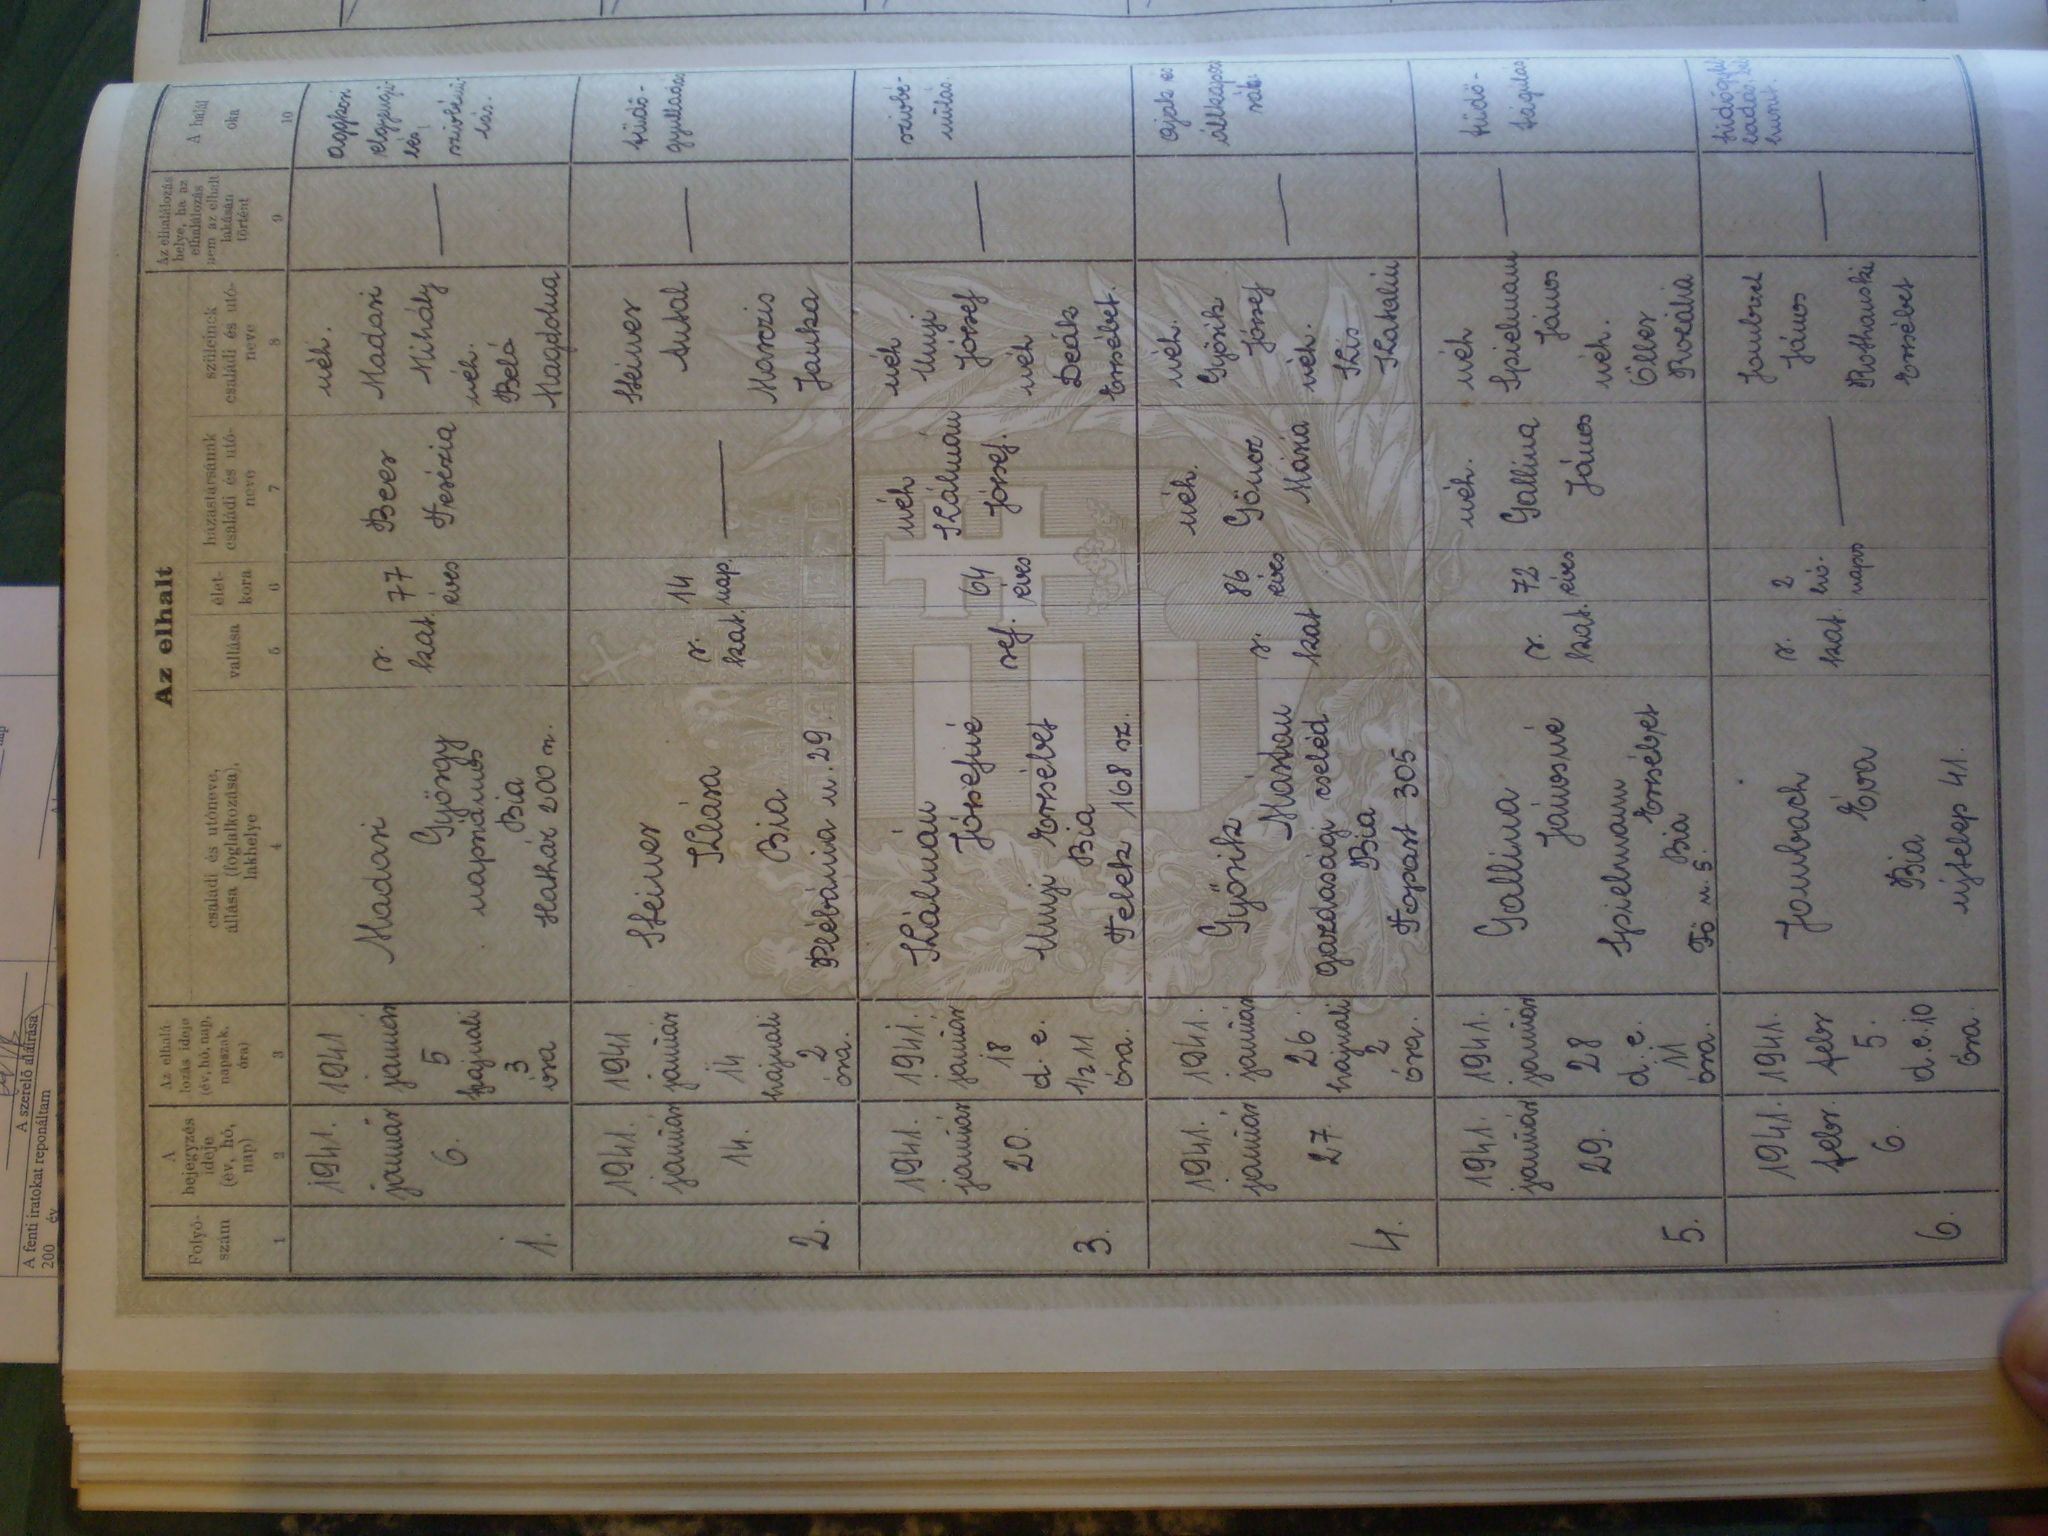 A szerelő aláírása
A fenti iratokat reponáltam
200 év
Az elhalt
Folyó-
szám
1
A
bejegyzés
ideje
(év, hó,
nap)
2
Az elhalá-
lozás ideje
(év, hó, nap,
napszak,
óra)
3
családi és utóneve,
állása (foglalkozása),
lakhelye
4
vallása
5
élet-
kora
6
házastársának
családi és utó-
neve
7
szüleinek
családi és utó-
neve
8
Az elhalálozás
helye, ha az
elhalálozás
nem az elhalt
lakásán
történt
9
A halál
oka
10
1.
1941.
január
6.
1941
január
5
hajnali
3
óra
Madari
György
napszámos
Bia
Határ 200 sz.
r.
kat.
77
éves
Beer
Terézia
néh.
Madari
Mihály
néh.
Belá
Magdolna
—
aggkori
elgyengü-
lés,
szívbénu-
lás.
2.
1941.
január
14.
1941
január
14
hajnali
2
óra.
Steiner
Klára
Bia
Plébánia u. 29.
r.
kat.
14
nap.
—
Steiner
Antal
Marczis
Janka
—
tüdő-
gyulladás
3.
1941.
január
20.
1941.
január
18
d. e.
1/2 11
óra.
Kálmán
Józsefné
Unyi Erzsébet
Bia
Telek 168 sz.
ref.
64
éves
néh
Kálmán
József.
néh
Unyi
József
néh
Deák
Erzsébet.
—
szívbé-
nulás.
4.
1941.
január
27.
1941.
január
26.
hajnali
2
óra.
Győsik
Márton
gazdasági cseléd
Bia
Tópart 305
r.
kat
86
éves
néh.
Göncz
Mária
néh.
Győsik
József
néh.
Kis
Katalin
—
ajak és
állkapocs
rák.
5.
1941.
január
29.
1941.
január
28
d. e.
11
óra.
Gallina
Jánosné
Spielmann
Erzsébet
Bia
Fő u. 5.
r.
kat.
72
éves
néh.
Gallina
János
néh
Spielmann
János
néh.
Öller
Rozália
—
tüdő-
tágulás
6.
1941.
febr.
6.
1941.
febr
5.
d. e. 10
óra.
Jombach
Éva
Bia
újtelep 41.
r.
kat.
2
hó.
napos
—
János
Erzsébet
—